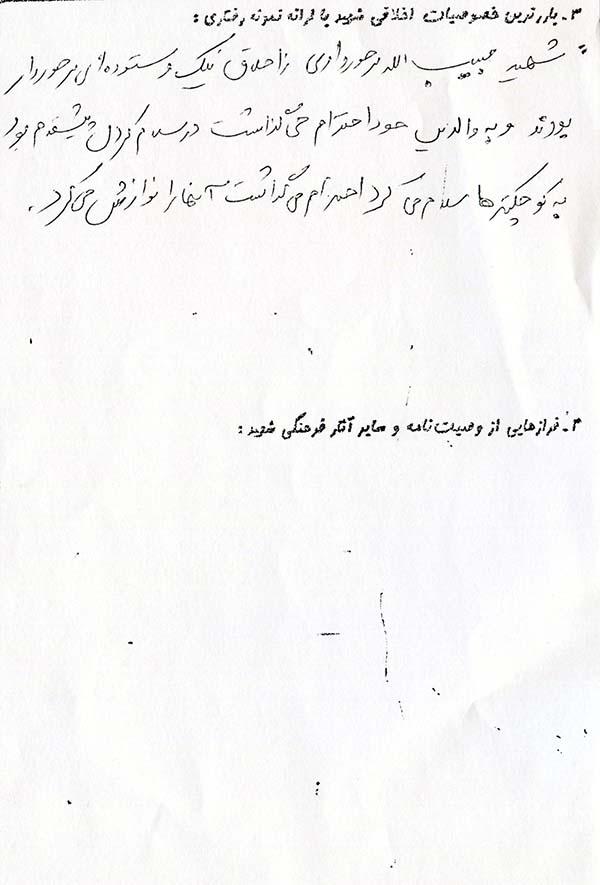 ۳ـ بارزترین خصوصیات اخلاقی شهید با ارائه نمونه رفتاری :
شهید حبیب الله برخورداری از اخلاق نیک و ستوده‌ای برخوردار
بودند و به والدین خود احترام می‌گذاشت در سلام کردن پیشقدم بود
به کوچکترها سلام می کرد احترام می‌گذاشت آنها را نوازش می‌کرد .
۴ـ فرازهایی از وصیت نامه و سایر آثار فرهنگی شهید :